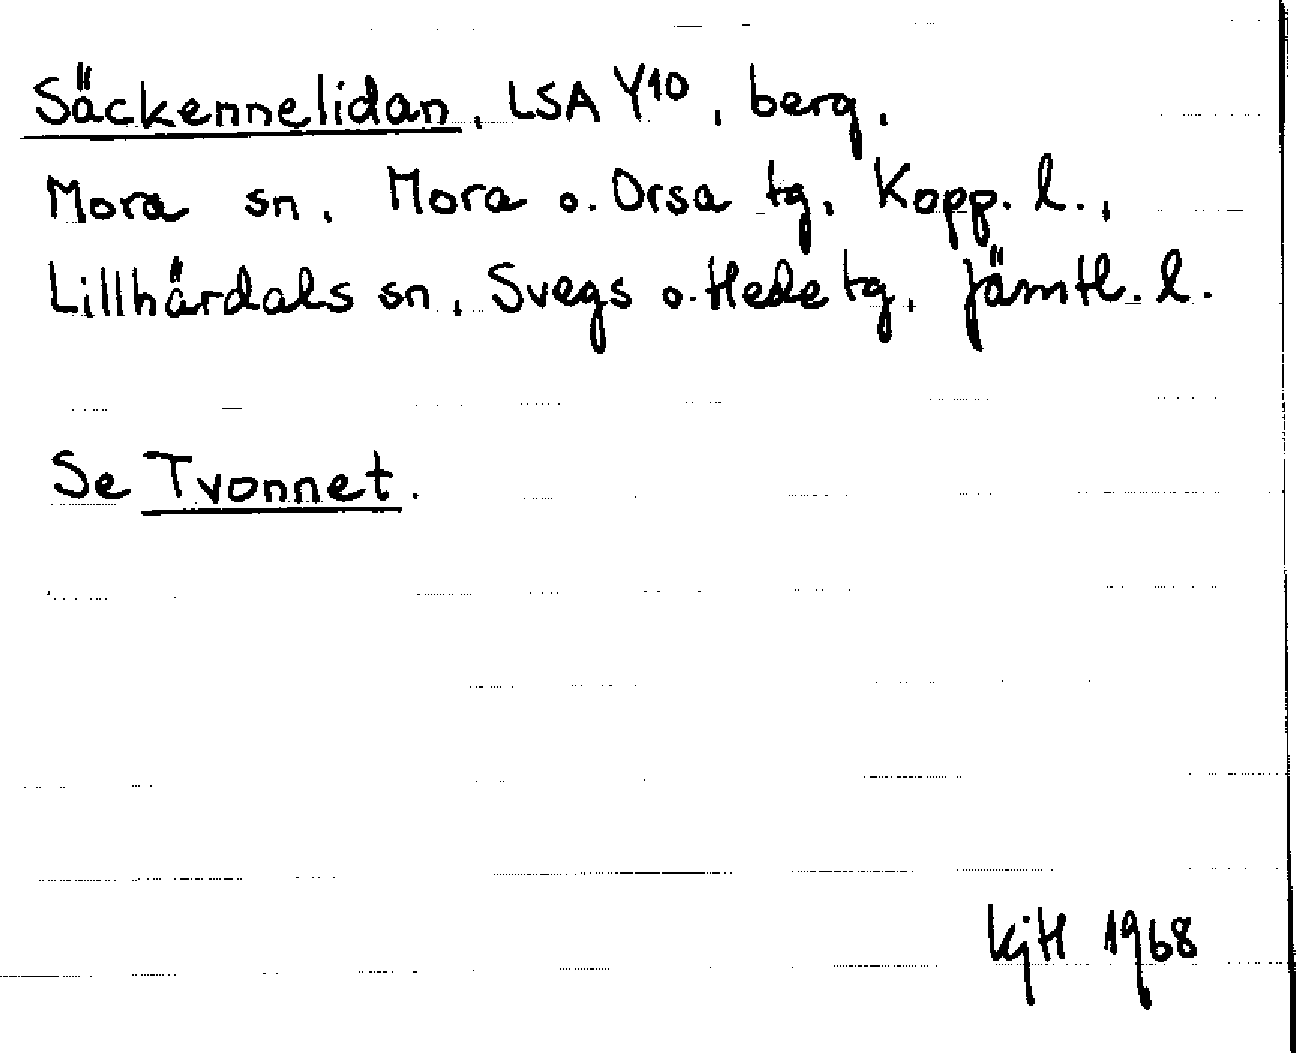 Säckennelidan, LSA Y10, berg.
Mora sn, Mora o. Orsa tg, Kopp. l.,
Lillhärdals sn, Svegs o. Hede tg, Jämtl. l.
Se Tvonnet.
KjH 1968